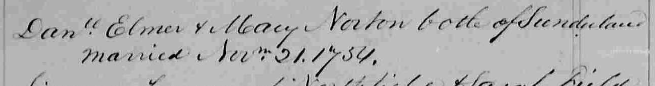 Danll Elmer & Mary Norton both of Sunderland
married Novm 21. 1754.
& Sarah Field